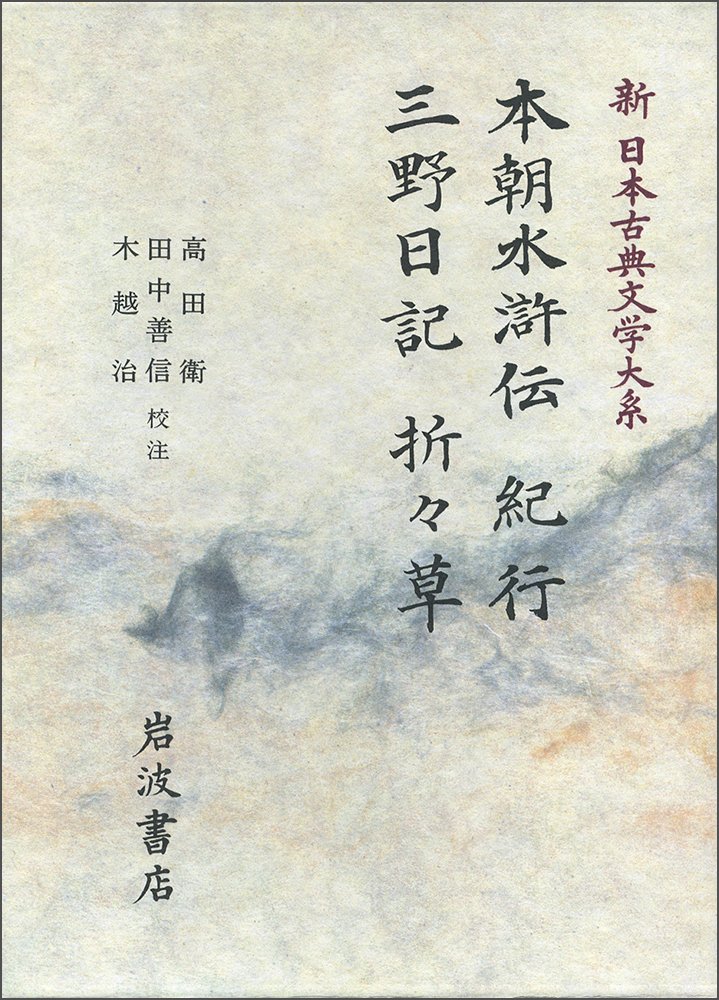 新 日本古典文学大系
本朝水滸伝 紀行
三野日記 折々草
高田衛
田中善信 校注
木越治
岩波書店